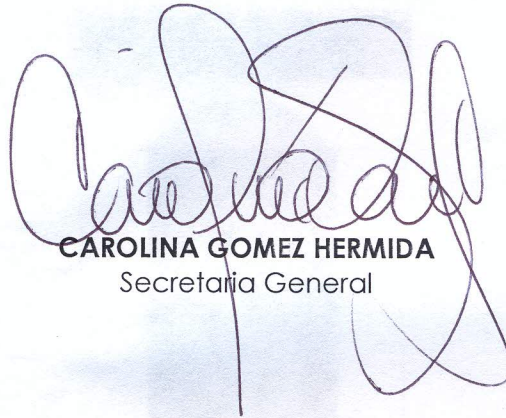 CAROLINA GOMEZ HERMIDA
Secretaria General